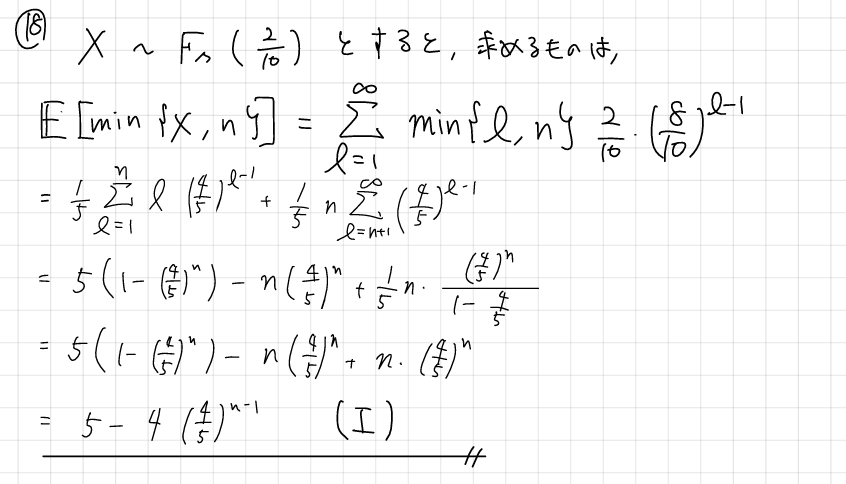 ⑱ X ~ Fs (2/10) とすると, 求めるものは,
E[min{X, n}] = ∑_{l=1}^{∞} min{l, n} 2/10 · (8/10)^{l-1}
= 1/5 ∑_{l=1}^{n} l (4/5)^{l-1} + 1/5 n ∑_{l=n+1}^{∞} (4/5)^{l-1}
= 5(1 - (4/5)^n) - n(4/5)^n + 1/5 n · (4/5)^n / (1 - 4/5)
= 5(1 - (4/5)^n) - n(4/5)^n + n · (4/5)^n
= 5 - 4 (4/5)^{n-1} (I)